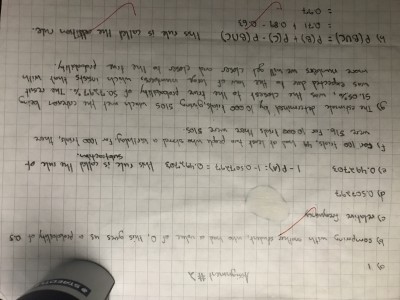 Assignment #2
a) 1
b) comparing with another student, who had a value of 0, this gives us a probability of 0.5
c) relative frequency
d) 0.507297
e) 0.492703    1 - P(A) = 1 - 0.507297 = 0.492703 this rule is called the rule of
subtraction.
f) For 100 trials, 49 had at least two people who shared a birthday, for 1000 trials, there
were 516, for 10 000 trials there were 5105
g) The example determined with 10 000 trials, giving 5105 which met the criterion being
51.05%, was the closest to the true probability of 50.7297%. The result
was expected due to the law of large numbers, which insists that with
more numbers we will get closer and closer to the true probability
h) P(BUC) = P(B) + P(C) - P(B∩C)    This rule is called the addition rule.
= 0.71 + 0.89 - 0.63
= 0.97